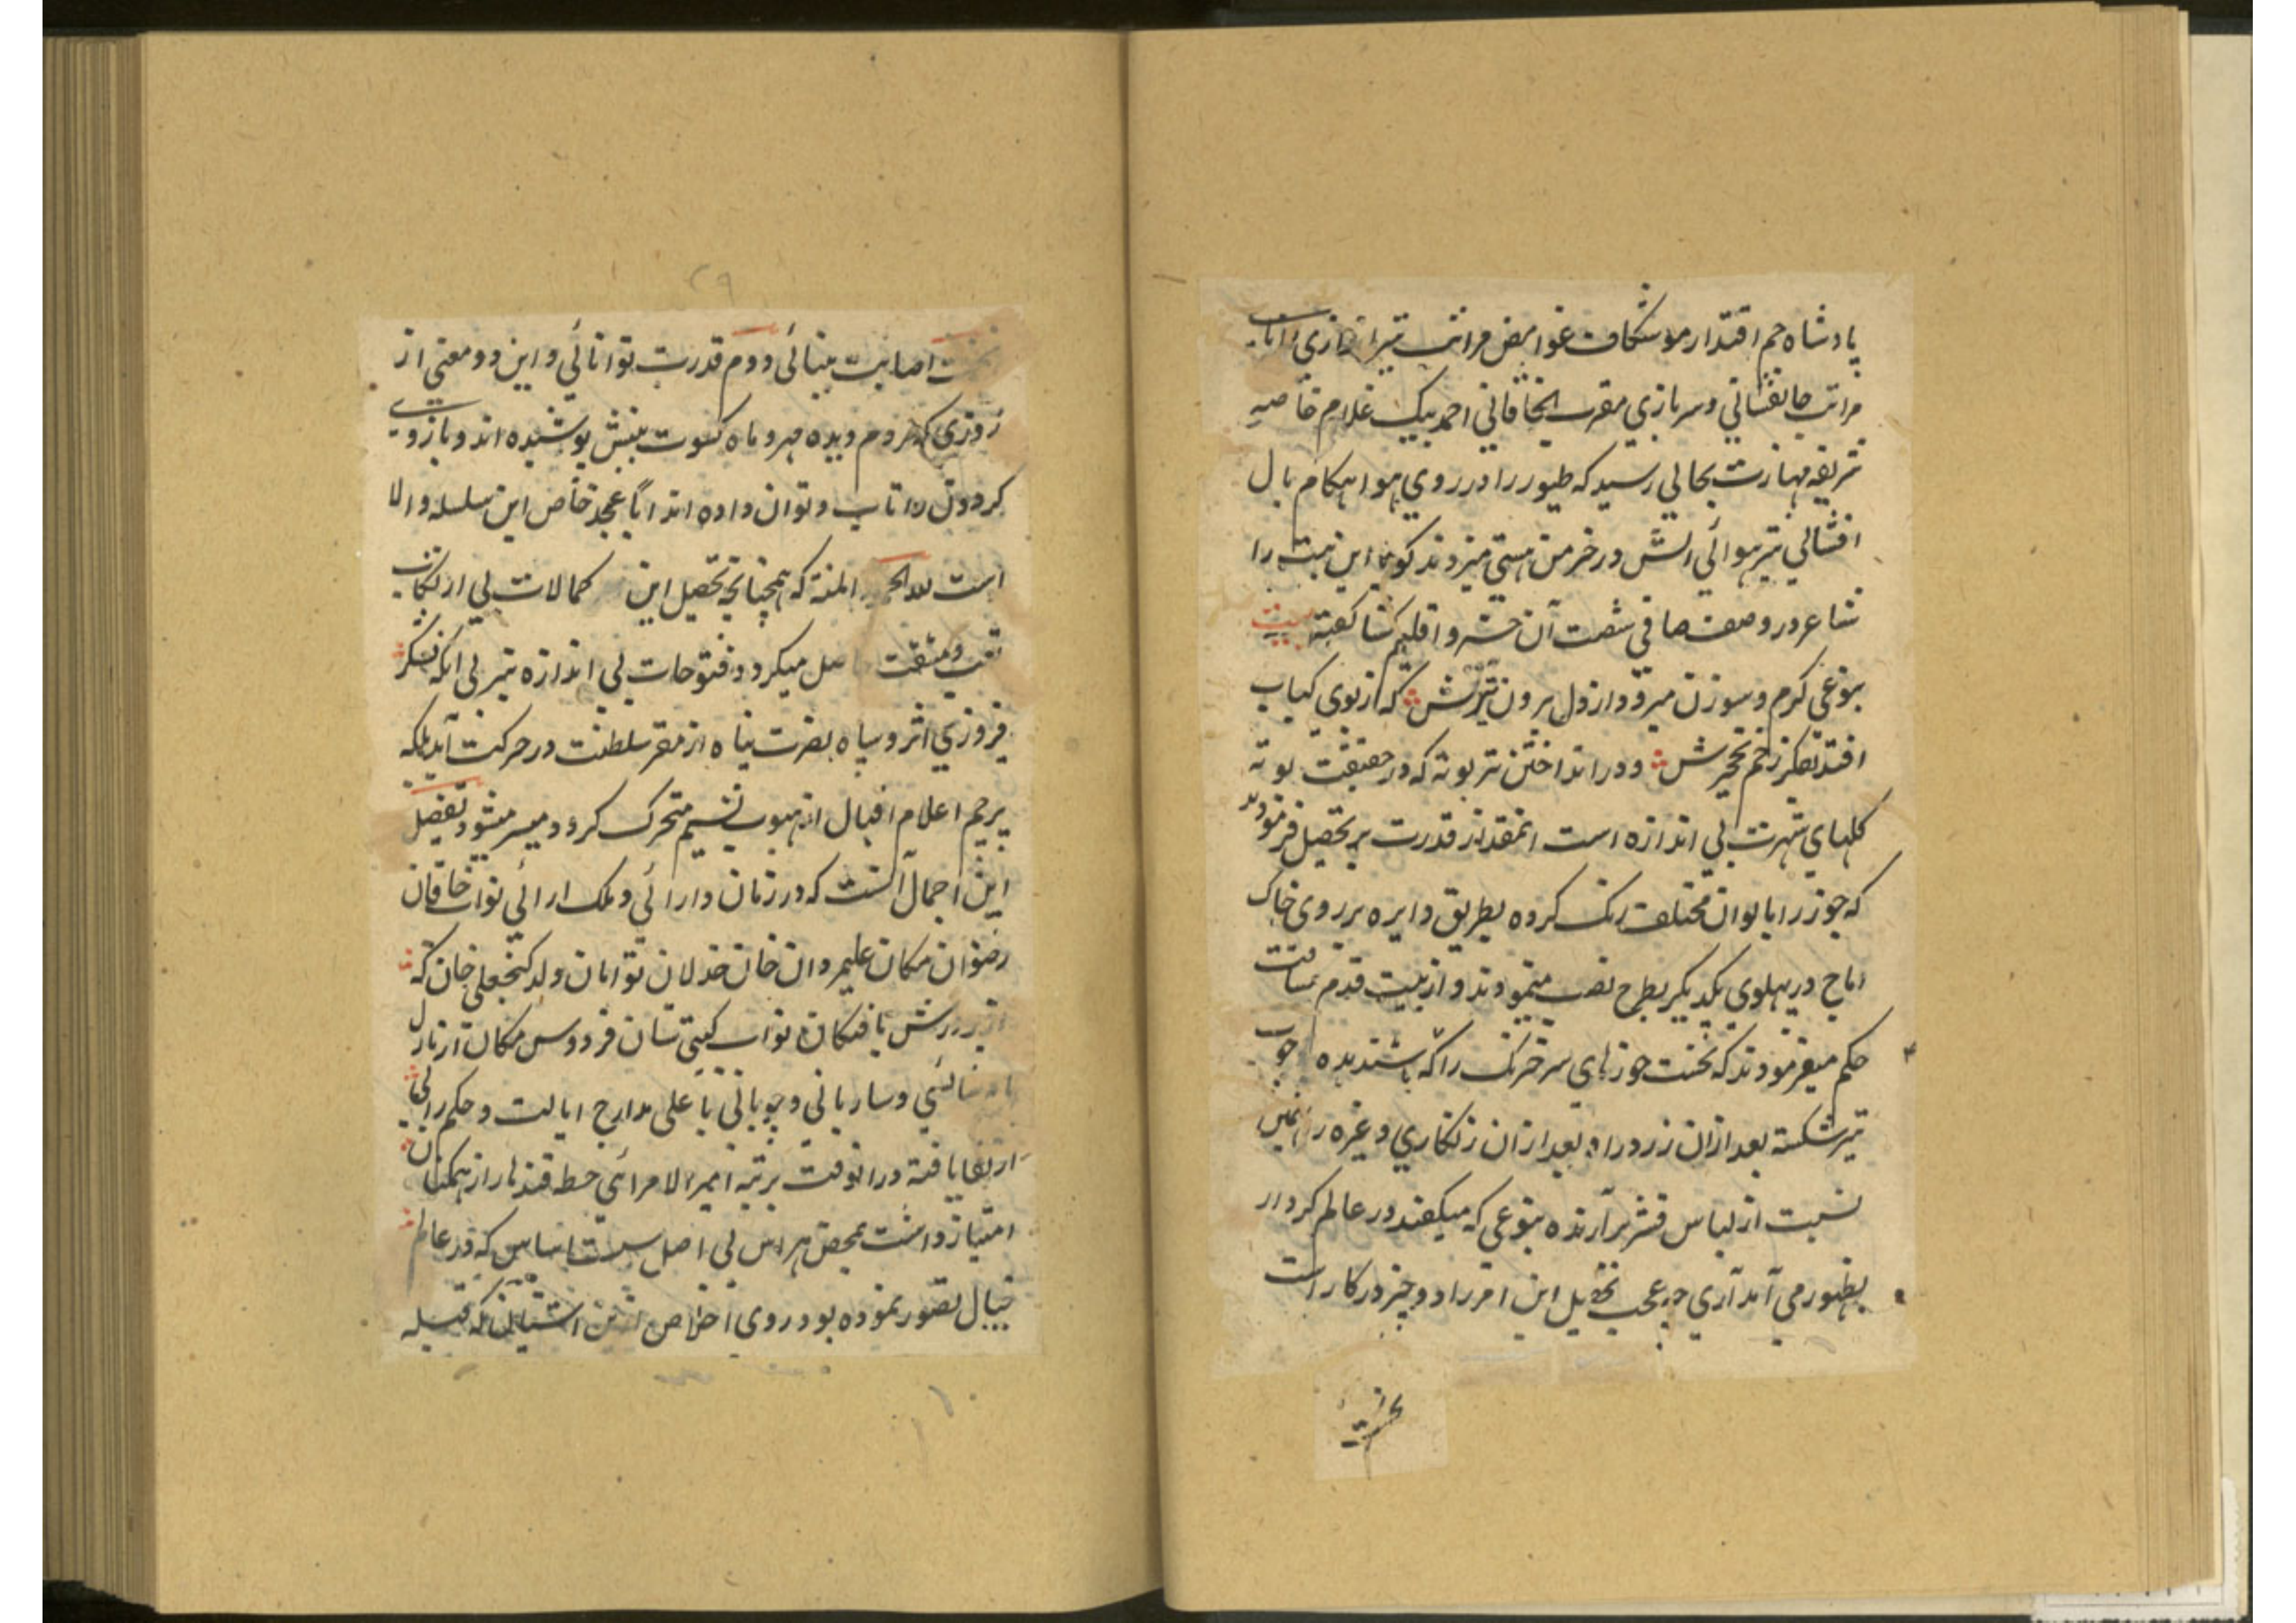 پادشاه جم اقتدار موشکاف غوامض مراتب تیراندازی را تاب
مراتب جانفشانی و سربازی مقرب الخاقانی احمد بیک غلام خاصه
شریفه مهارت بحالی رسید که طیور را در روی هوا هنکام بال
افشانی تیر هوائی آتش در خرمن هستی میزدند کویا این بیت را
شاعر در وصف صافی شصت آن خسرو اقلیم کشا کفته بیت
بنوعی کرم و سوزن میرود از دل برون تیرش که از بوی کباب
افتد بفکر زخم نخجیرش و در انداختن تیر بوته که در حقیقت بوته
کلهای شهرت بی اندازه است انمقدار قدرت بر تحصیل فرمودند
که جوز را بالوان مختلف رنک کرده بطریق دایره بر روی خاک
اماج در پهلوی یکدیکر بطرح نصب مینمودند و از بیست قدم مسافت
حکم میفرمودند که نخست جوزهای سرخ رنک را که باشد بده چوب
تیر شکسته بعد ازان زرد را و بعد ازان زنکاری و غیره را بهمین
نسبت از لباس قشر برآرنده بنوعی که میکفتند در عالم کردار
بظهور می آمد آری چه عجب تحصیل این امر را دو چیز در کار است
نخست
۲۹
نخست اصابت بینائی دوم قدرت توانائی و این دو معنی از
روزی که مردم دیده مهر و ماه کسوت بینش پوشیده اند و بازوی
کردون را تاب و توان داده اند اباً عجد خاص این سلسله والا
است لله الحمد و المنه که همچنانچه تحصیل این کمالات بی ارتکاب
تعب و مشقت حاصل میکردد فتوحات بی اندازه نیز بی انکه لشکر
فیروزی اثر و سپاه نصرت پناه از مقر سلطنت در حرکت آید بلکه
پرچم اعلام اقبال از هبوب نسیم متحرک کردد میسر میشود تفصیل
این اجمال آنست که در زمان دارائی و ملک ارائی نواب خاقان
رضوان مکان علیمردان خان خذلان توامان ولد کنجعلی خان که
از پرورش یافتکان نواب کیتی ستان فردوس مکان از نازل
پایه شائی و ساربانی و چوپانی با علی مدارج ایالت و حکمرانی
ارتقا یافته در انوقت برتبه امیر الامرائی خطه قندهار از همکنان
امتیاز داشت بمحض هراس بی اصل سست اساس که در عالم
خیال تصور نموده بود روی اخلاص ازین آستان که قبله